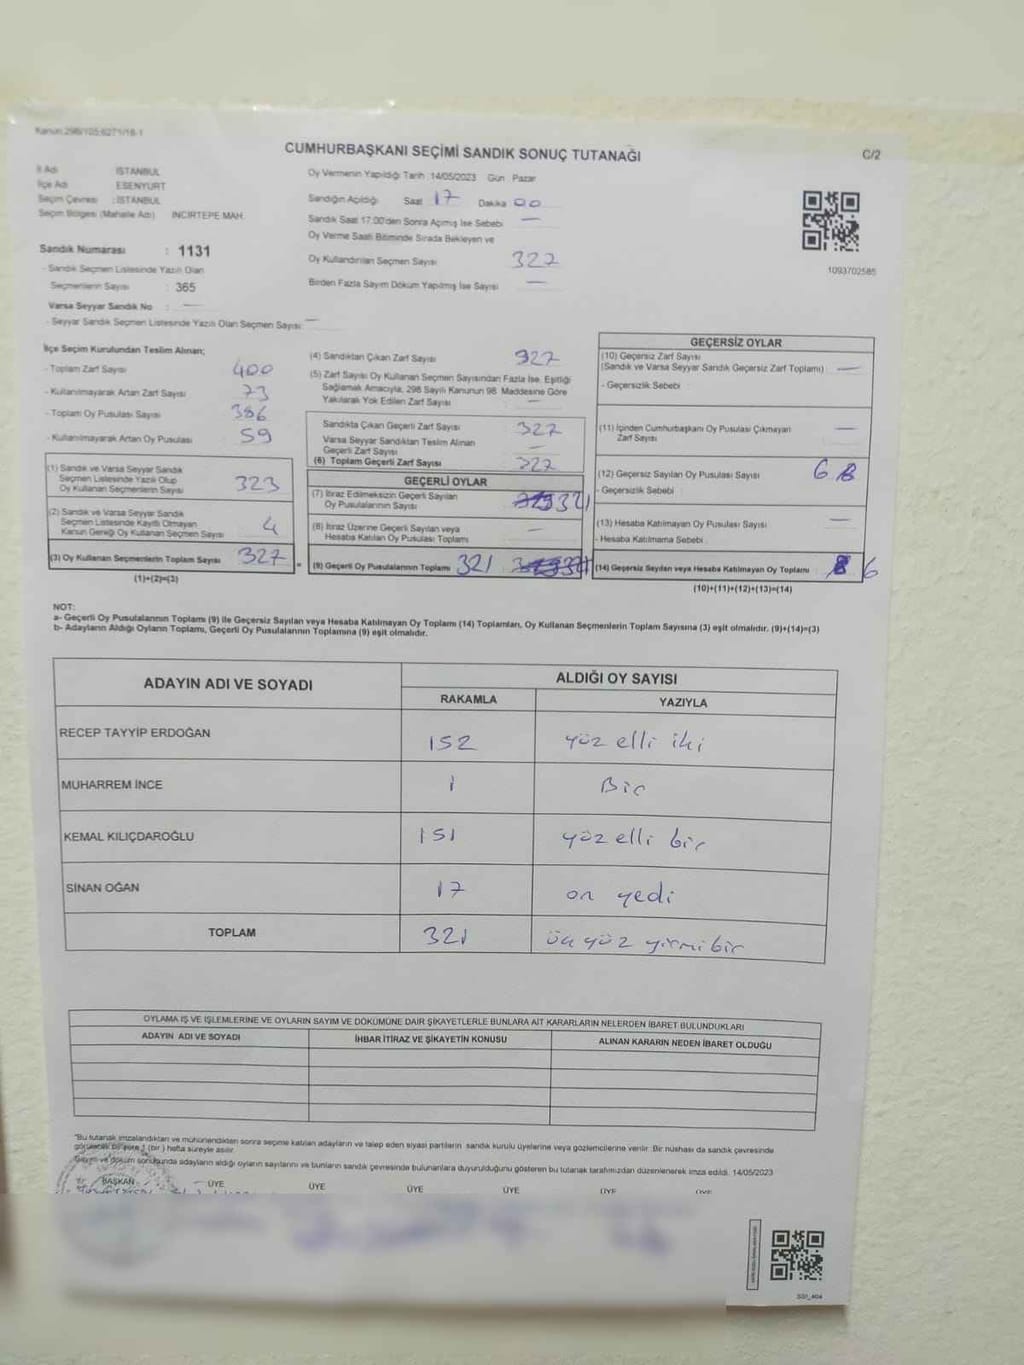 Kanun:298/105;6271/18-1
CUMHURBAŞKANI SEÇİMİ SANDIK SONUÇ TUTANAĞI
C/2
İl Adı İSTANBUL
İlçe Adı ESENYURT
Seçim Çevresi : İSTANBUL
Seçim Bölgesi (Mahalle Adı) İNCİRTEPE MAH.
Oy Vermenin Yapıldığı Tarih :14/05/2023 Gün Pazar
Sandığın Açıldığı Saat 17 Dakika 00
Sandık Saat 17.00'den Sonra Açımış İse Sebebi —
Oy Verme Saati Bitiminde Sırada Bekleyen ve
Oy Kullandırılan Seçmen Sayısı 327
Birden Fazla Sayım Döküm Yapılmış İse Sayısı —
1093702585
Sandık Numarası : 1131
- Sandık Seçmen Listesinde Yazılı Olan
Seçmenlerin Sayısı : 365
Varsa Seyyar Sandık No : —
- Seyyar Sandık Seçmen Listesinde Yazılı Olan Seçmen Sayısı: —
İlçe Seçim Kurulundan Teslim Alınan;
- Toplam Zarf Sayısı 400
- Kullanılmayarak Artan Zarf Sayısı 73
- Toplam Oy Pusulası Sayısı 386
- Kullanılmayarak Artan Oy Pusulası 59
(1) Sandık ve Varsa Seyyar Sandık
Seçmen Listesinde Yazılı Olup
Oy Kullanan Seçmenlerin Sayısı 323
(2) Sandık ve Varsa Seyyar Sandık
Seçmen Listesinde Kayıtlı Olmayan
Kanun Gereği Oy Kullanan Seçmen Sayısı 4
(3) Oy Kullanan Seçmenlerin Toplam Sayısı 327
(1)+(2)=(3)
(4) Sandıktan Çıkan Zarf Sayısı 327
(5) Zarf Sayısı Oy Kullanan Seçmen Sayısından Fazla İse, Eşitliği
Sağlamak Amacıyla, 298 Sayılı Kanunun 98. Maddesine Göre
Yakılarak Yok Edilen Zarf Sayısı —
Sandıkta Çıkan Geçerli Zarf Sayısı 327
Varsa Seyyar Sandıktan Teslim Alınan
Geçerli Zarf Sayısı —
(6) Toplam Geçerli Zarf Sayısı 327
GEÇERLİ OYLAR
(7) İtiraz Edilmeksizin Geçerli Sayılan
Oy Pusulalarının Sayısı 321
(8) İtiraz Üzerine Geçerli Sayılan veya
Hesaba Katılan Oy Pusulası Toplamı —
= (9) Geçerli Oy Pusulalarının Toplamı 321
GEÇERSİZ OYLAR
(10) Geçersiz Zarf Sayısı
(Sandık ve Varsa Seyyar Sandık Geçersiz Zarf Toplamı) —
- Geçersizlik Sebebi
(11) İçinden Cumhurbaşkanı Oy Pusulası Çıkmayan
Zarf Sayısı —
(12) Geçersiz Sayılan Oy Pusulası Sayısı 6
- Geçersizlik Sebebi
(13) Hesaba Katılmayan Oy Pusulası Sayısı —
- Hesaba Katılmama Sebebi
(14) Geçersiz Sayılan veya Hesaba Katılmayan Oy Toplamı 6
(10)+(11)+(12)+(13)=(14)
NOT:
a- Geçerli Oy Pusulalarının Toplamı (9) ile Geçersiz Sayılan veya Hesaba Katılmayan Oy Toplamı (14) Toplamları, Oy Kullanan Seçmenlerin Toplam Sayısına (3) eşit olmalıdır. (9)+(14)=(3)
b- Adayların Aldığı Oyların Toplamı, Geçerli Oy Pusulalarının Toplamına (9) eşit olmalıdır.
ADAYIN ADI VE SOYADI
ALDIĞI OY SAYISI
RAKAMLA YAZIYLA
RECEP TAYYİP ERDOĞAN 152 yüz elli iki
MUHARREM İNCE 1 Bir
KEMAL KILIÇDAROĞLU 151 yüz elli bir
SİNAN OĞAN 17 on yedi
TOPLAM 321 üç yüz yirmi bir
OYLAMA İŞ VE İŞLEMLERİNE VE OYLARIN SAYIM VE DÖKÜMÜNE DAİR ŞİKAYETLERLE BUNLARA AİT KARARLARIN NELERDEN İBARET BULUNDUKLARI
ADAYIN ADI VE SOYADI İHBAR İTİRAZ VE ŞİKAYETİN KONUSU ALINAN KARARIN NEDEN İBARET OLDUĞU
"Bu tutanak imzalandıktan ve mühürlendikten sonra seçime katılan adayların ve talep eden siyasi partilerin sandık kurulu üyelerine veya gözlemcilerine verilir. Bir nüshası da sandık çevresinde
görülecek bir yere 1 (bir) hafta süreyle asılır.
Sayım ve döküm sonucunda adayların aldığı oyların sayılarını ve bunların sandık çevresinde bulunanlara duyurulduğunu gösteren bu tutanak tarafımızdan düzenlenerek imza edildi. 14/05/2023
BAŞKAN ÜYE ÜYE ÜYE ÜYE ÜYE ÜYE